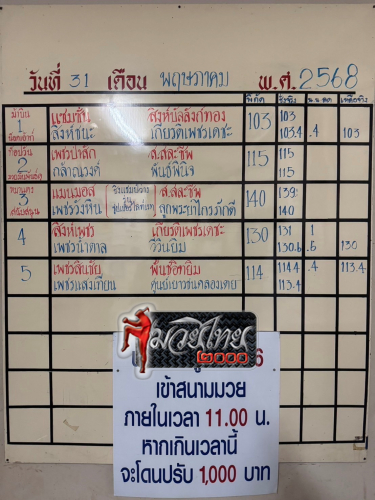 วันที่ 31 เดือน พฤษภาคม พ.ศ. 2568
พิกัด ชั่งจริง น.น.ลด เหลือจริง
1 แชมชั่น สิงห์บัลลังก์ทอง 103 103
สิงห์ชนะ เกียรติเพชรเดชะ 103.4 .4 103
2 เพชรปาสัก ส.สละชีพ 115 115
กล้าณรงค์ พันธ์พินิจ 115
3 แมนมอส ส.สละชีพ 140 139
เพชรวังหิน ลูกพระยาไกรภักดี 140
4 สิงห์เพชร เกียรติเพชรเดชะ 130 131 1
เพชรน้ำตาล 130.6 .6 130
5 เพชรสินชัย พันธ์อทยิม 114 114.4 .6 113.4
เพชรแสงเทียน ศูนย์เยาวชนคลองเตย 113.4
มวยไทย
๒๐๐๐
6
เข้าสนามมวย
ภายในเวลา 11.00 น.
หากเกินเวลานี้
จะโดนปรับ 1,000 บาท